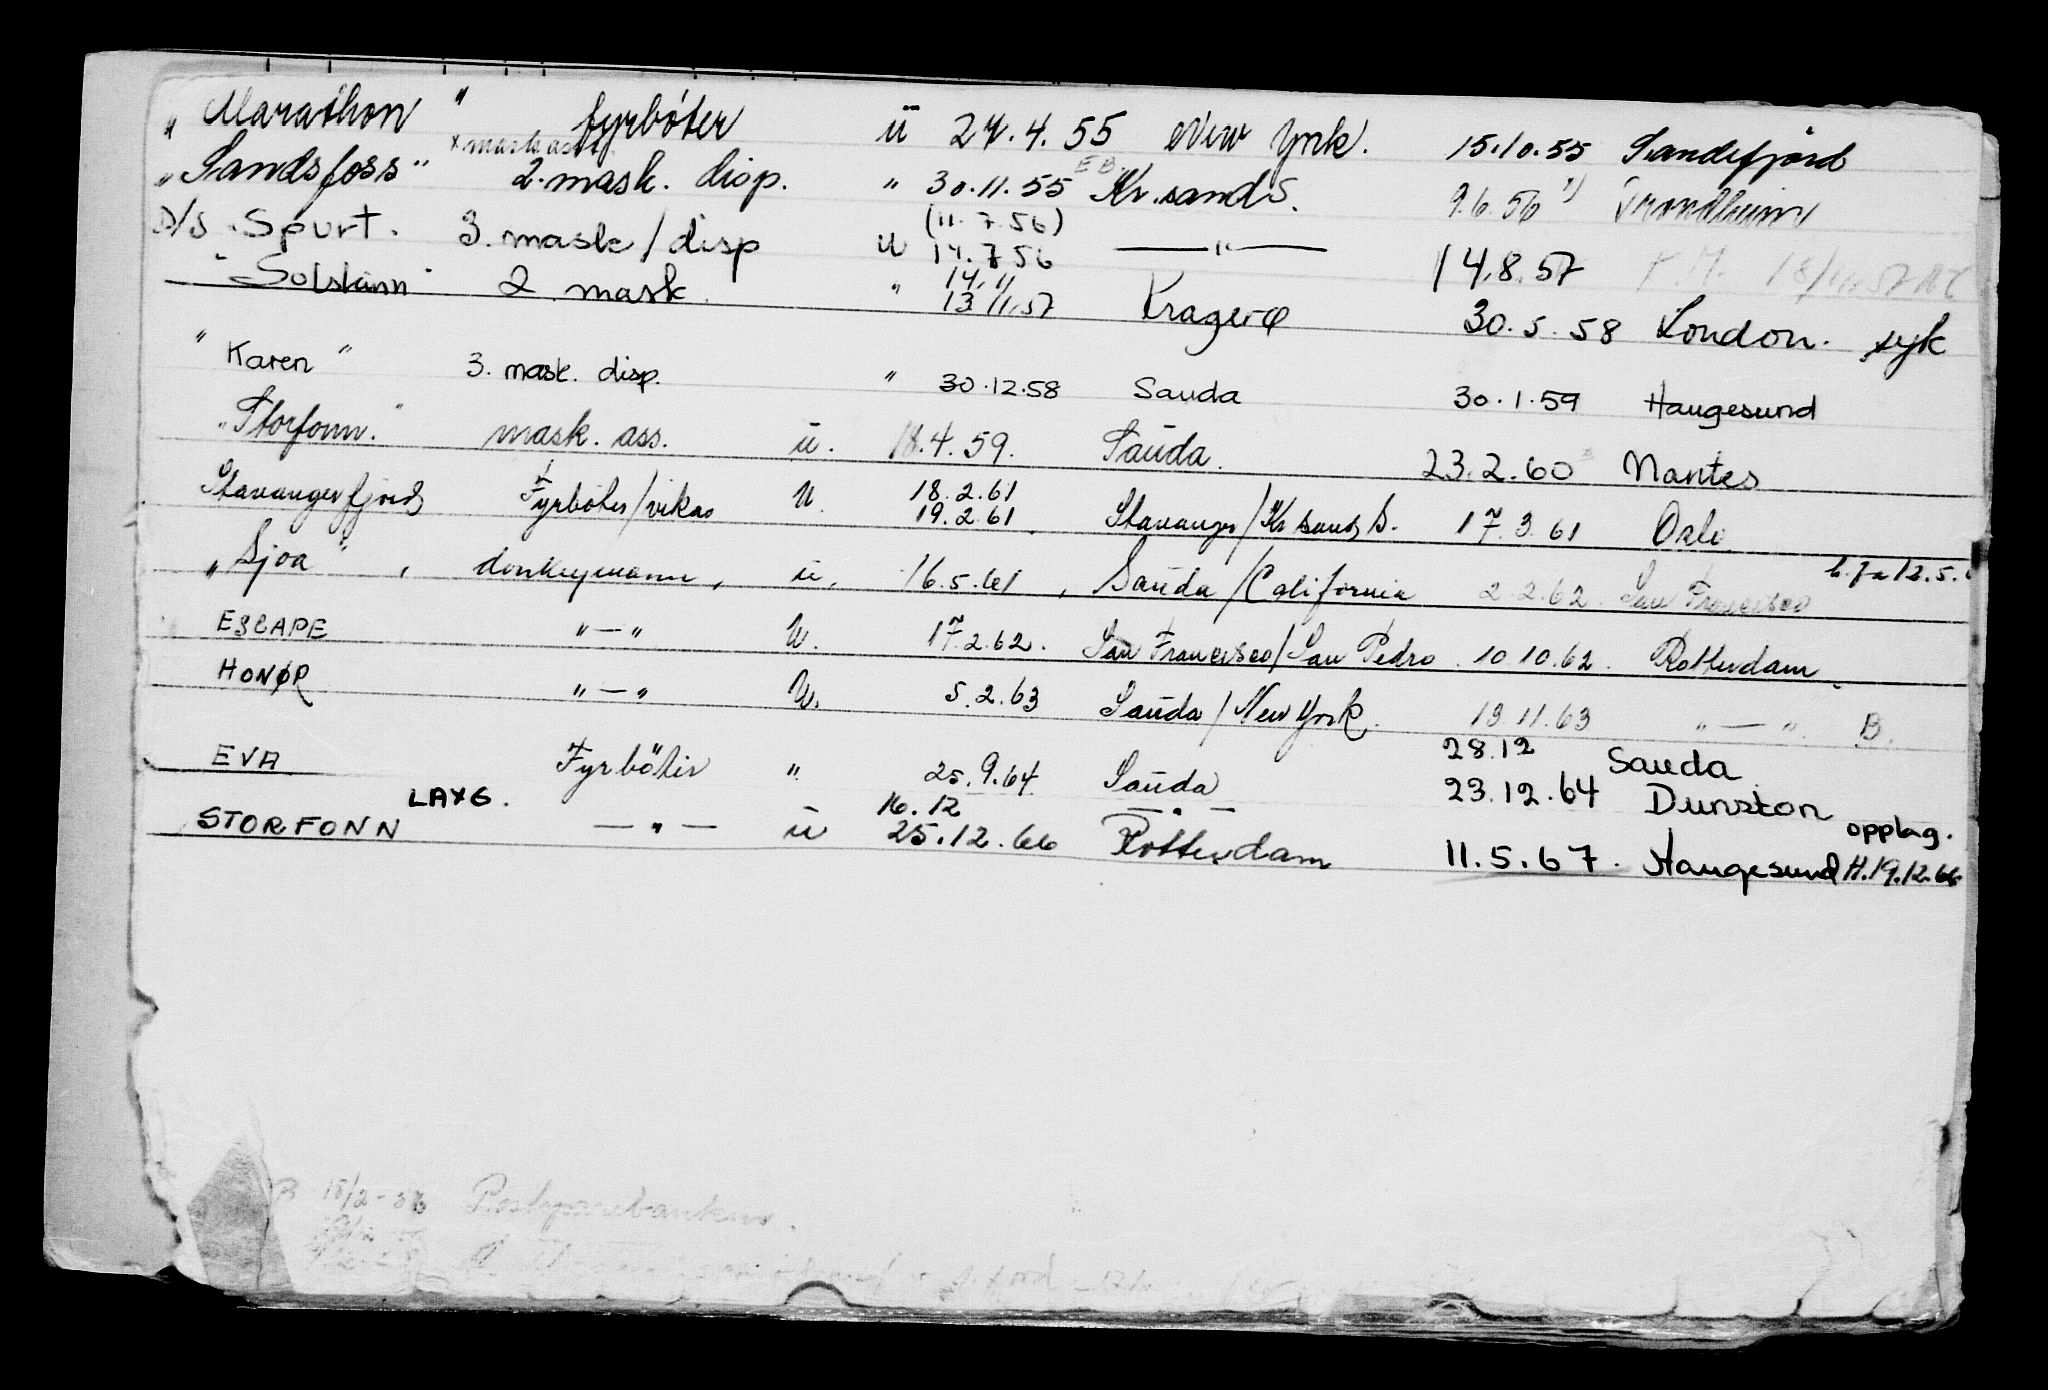 " Marathon " fyrbøter ü 24.4.55 New York. 15.10.55 Sandefjord
x mask ass
"Sandsfoss" 2. mask. disp. " 30.11.55 Kr.sand S. 9.6.56 1) Trondheim
(11.7.56)
D/S. Spurt. 3. mask/disp u 14.7.56 —"— 14.8.57
14.11
"Solskinn" 2 mask. " 13.11.57 Kragerø 30.5.58 London. syk
" Karen " 3. mask. disp. " 30.12.58 Sauda 30.1.59 Haugesund
"Storfonn." mask. ass. ü. 18.4.59. Sauda. 23.2.60 Nantes
18.2.61
Stavangerfjord Fyrbøter/vikar U. 19.2.61. Stavanger/Kr sand S. 17.3.61 Oslo
"Sjoa", donkeymann, ü, 16.5.61, Sauda/California 2.2.62. San Francisco
ESCAPE "—" U. 17.2.62. San Francisco/San Pedro. 10.10.62. Rotterdam
HONØR "—" U. 5.2.63 Sauda/New York. 13.11.63 "—" B.
28.12 Sauda
EVA Fyrbøter " 25.9.64 Sauda 23.12.64 Dunston
LAXG. 16.12 —"— opplag.
STORFONN —"— ü 25.12.66 Rotterdam 11.5.67. Haugesund H.19.12.66
18/2-56 Postsparebanken.